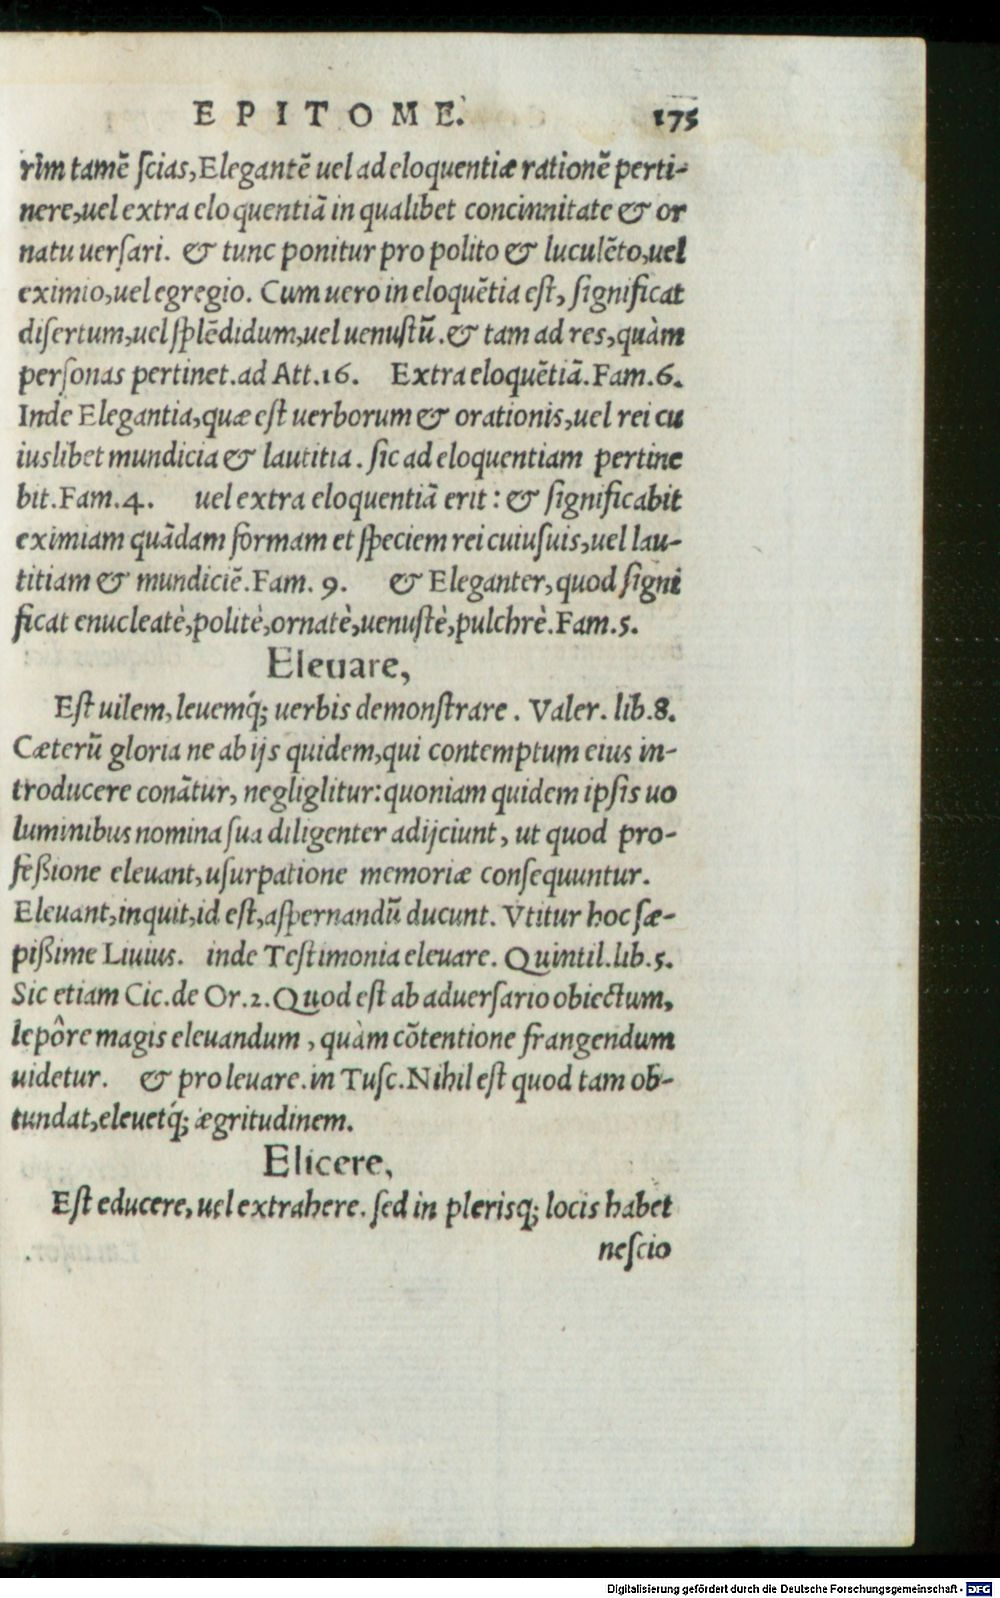 EPITOME. 175
rim tamē ſcias, Elegantē uel ad eloquentiæ rationē perti-
nere, uel extra eloquentiā in qualibet concinnitate & or
natu uerſari. & tunc ponitur pro polito & luculēto, uel
eximio, uel egregio. Cum uero in eloquētia eſt, ſignificat
diſertum, uel ſplēdidum, uel uenuſtū. & tam ad res, quàm
perſonas pertinet. ad Att. 16. Extra eloquētiā. Fam. 6.
Inde Elegantia, quæ eſt uerborum & orationis, uel rei cu
iuslibet mundicia & lautitia. ſic ad eloquentiam pertine
bit. Fam. 4. uel extra eloquentiā erit: & ſignificabit
eximiam quādam formam et ſpeciem rei cuiuſuis, uel lau-
titiam & mundiciē. Fam. 9. & Eleganter, quod ſigni
ficat enucleatè, politè, ornatè, uenuſtè, pulchrè. Fam. 5.
Eleuare,
Eſt uilem, leuemq́; uerbis demonſtrare. Valer. lib. 8.
Cæterū gloria ne ab ijs quidem, qui contemptum eius in-
troducere conātur, negliglitur: quoniam quidem ipſis uo
luminibus nomina ſua diligenter adijciunt, ut quod pro-
feßione eleuant, uſurpatione memoriæ conſequuntur.
Eleuant, inquit, id eſt, aſpernandū ducunt. Vtitur hoc ſæ-
pißime Liuius. inde Teſtimonia eleuare. Quintil. lib. 5.
Sic etiam Cic. de Or. 2. Quod eſt ab aduerſario obiectum,
lepôre magis eleuandum, quàm cōtentione frangendum
uidetur. & pro leuare. in Tuſc. Nihil eſt quod tam ob-
tundat, eleuetq́; ægritudinem.
Elicere,
Eſt educere, uel extrahere. ſed in plerisq; locis habet
neſcio
Digitalisierung gefördert durch die Deutsche Forschungsgemeinschaft - DFG